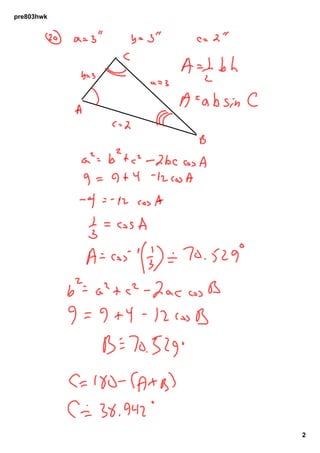 pre803hwk
20 a=3" b=3" c=2"
C
b=3 a=3
A
c=2
B
A=1/2 bh
A=absin C
a²=b²+c²-2bc cosA
9=9+4-12cosA
-4=-12 cosA
1/3=cosA
A=cos⁻¹(1/3)≐70.529°
b²=a²+c²-2ac cosB
9=9+4-12cosB
B≐70.529°
C=180-(A+B)
C≐38.942°
2